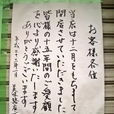 お客様各位
当店は十二月をもちまして
閉店させていただきました
皆様の十五年間のご愛顧
を心より感謝いたします
ありがとうございます